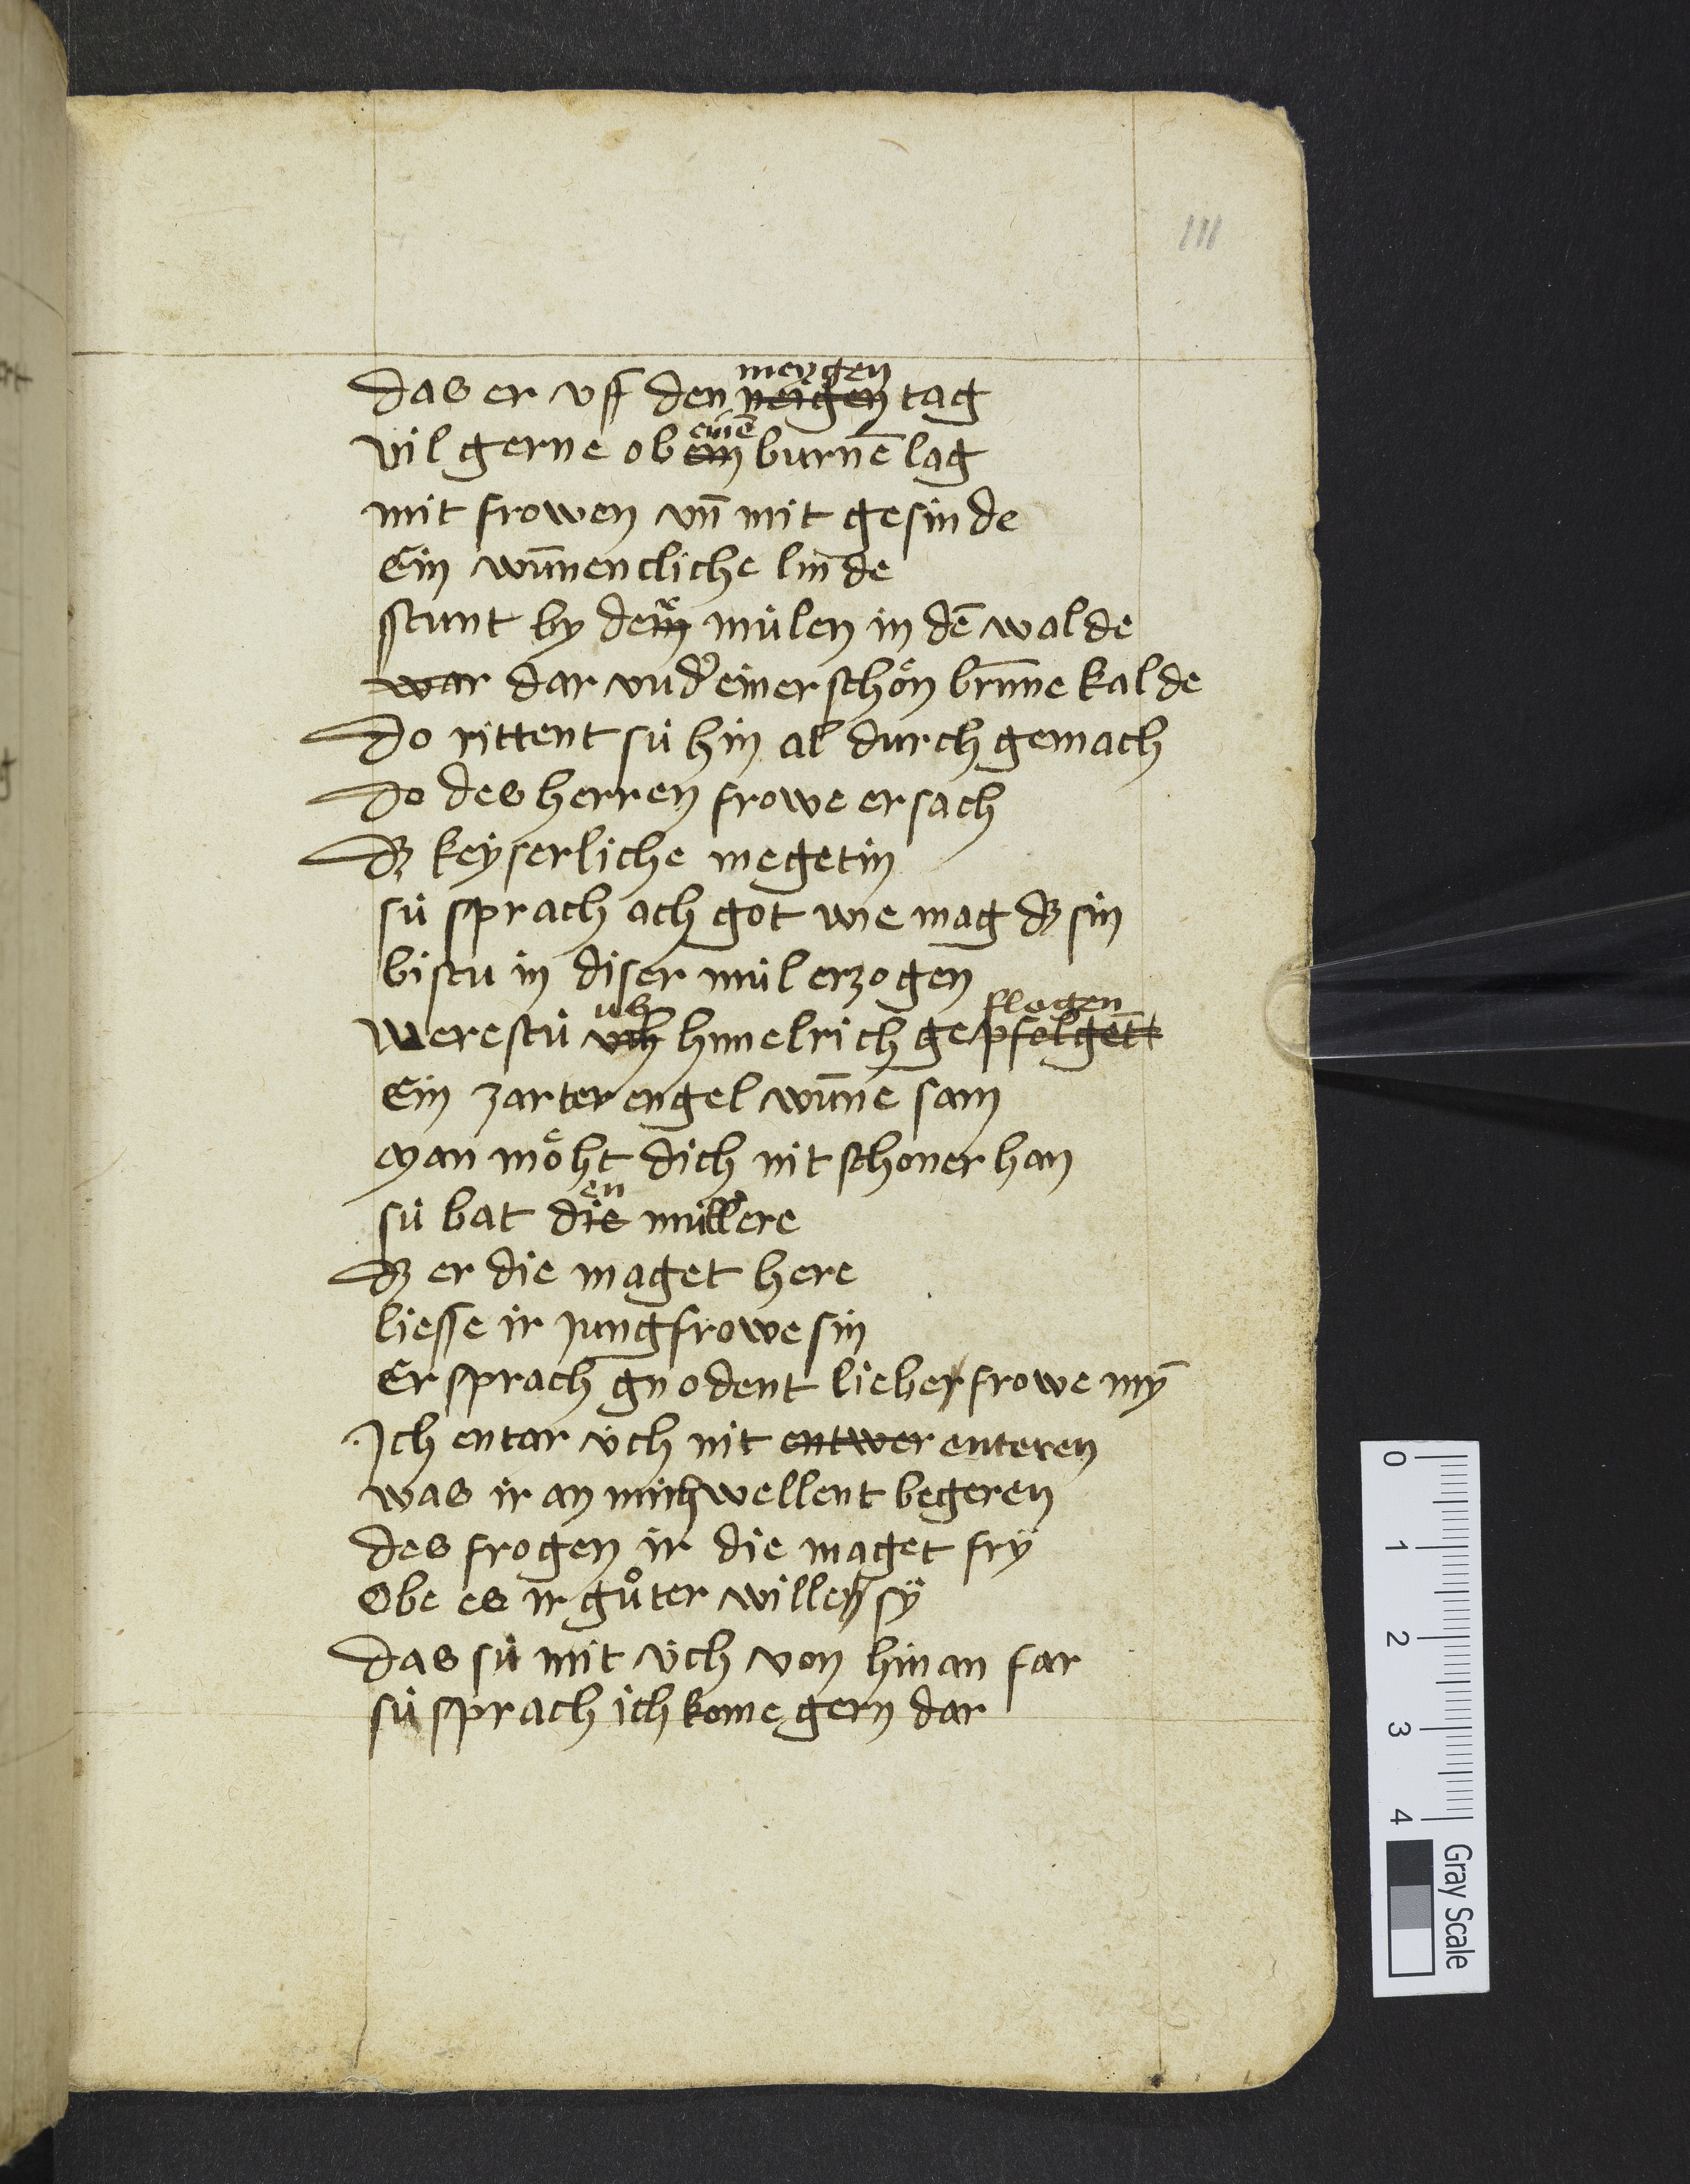 111
meygen
das er vff den neigen tag
einē
vil gerne ob ein burnē lag
mit frowen vn̄ mit gesinde
Ein wūnencliche linde
stunt by dem mülen in dē walde
war dar vnd' einer schön brūne kalde
do rittent sü hin al durch gemach
do des herren frowe ersach
dz keyserliche megetin
sü sprach ach got wie mag dz sin
bistu in diser mül erzogen
us flogen
Werestü vch himelrich gepfolgett
Ein zarter engel wūne sam
Man möht dich nit schoner han
en
sü bat die müllere
dz er die maget here
liesse ir jungfrowe sin
Er sprach gnodent lieber frowe mȳ
Ich entar üch nit entwer enteren
was ir an mich wellent begeren
des frogen ir die maget frÿ
Obe es ir gůter willen sÿ
das sü mit üch von hinan far
sü sprach ich kome gern dar
0
1
2
3
4
Gray Scale